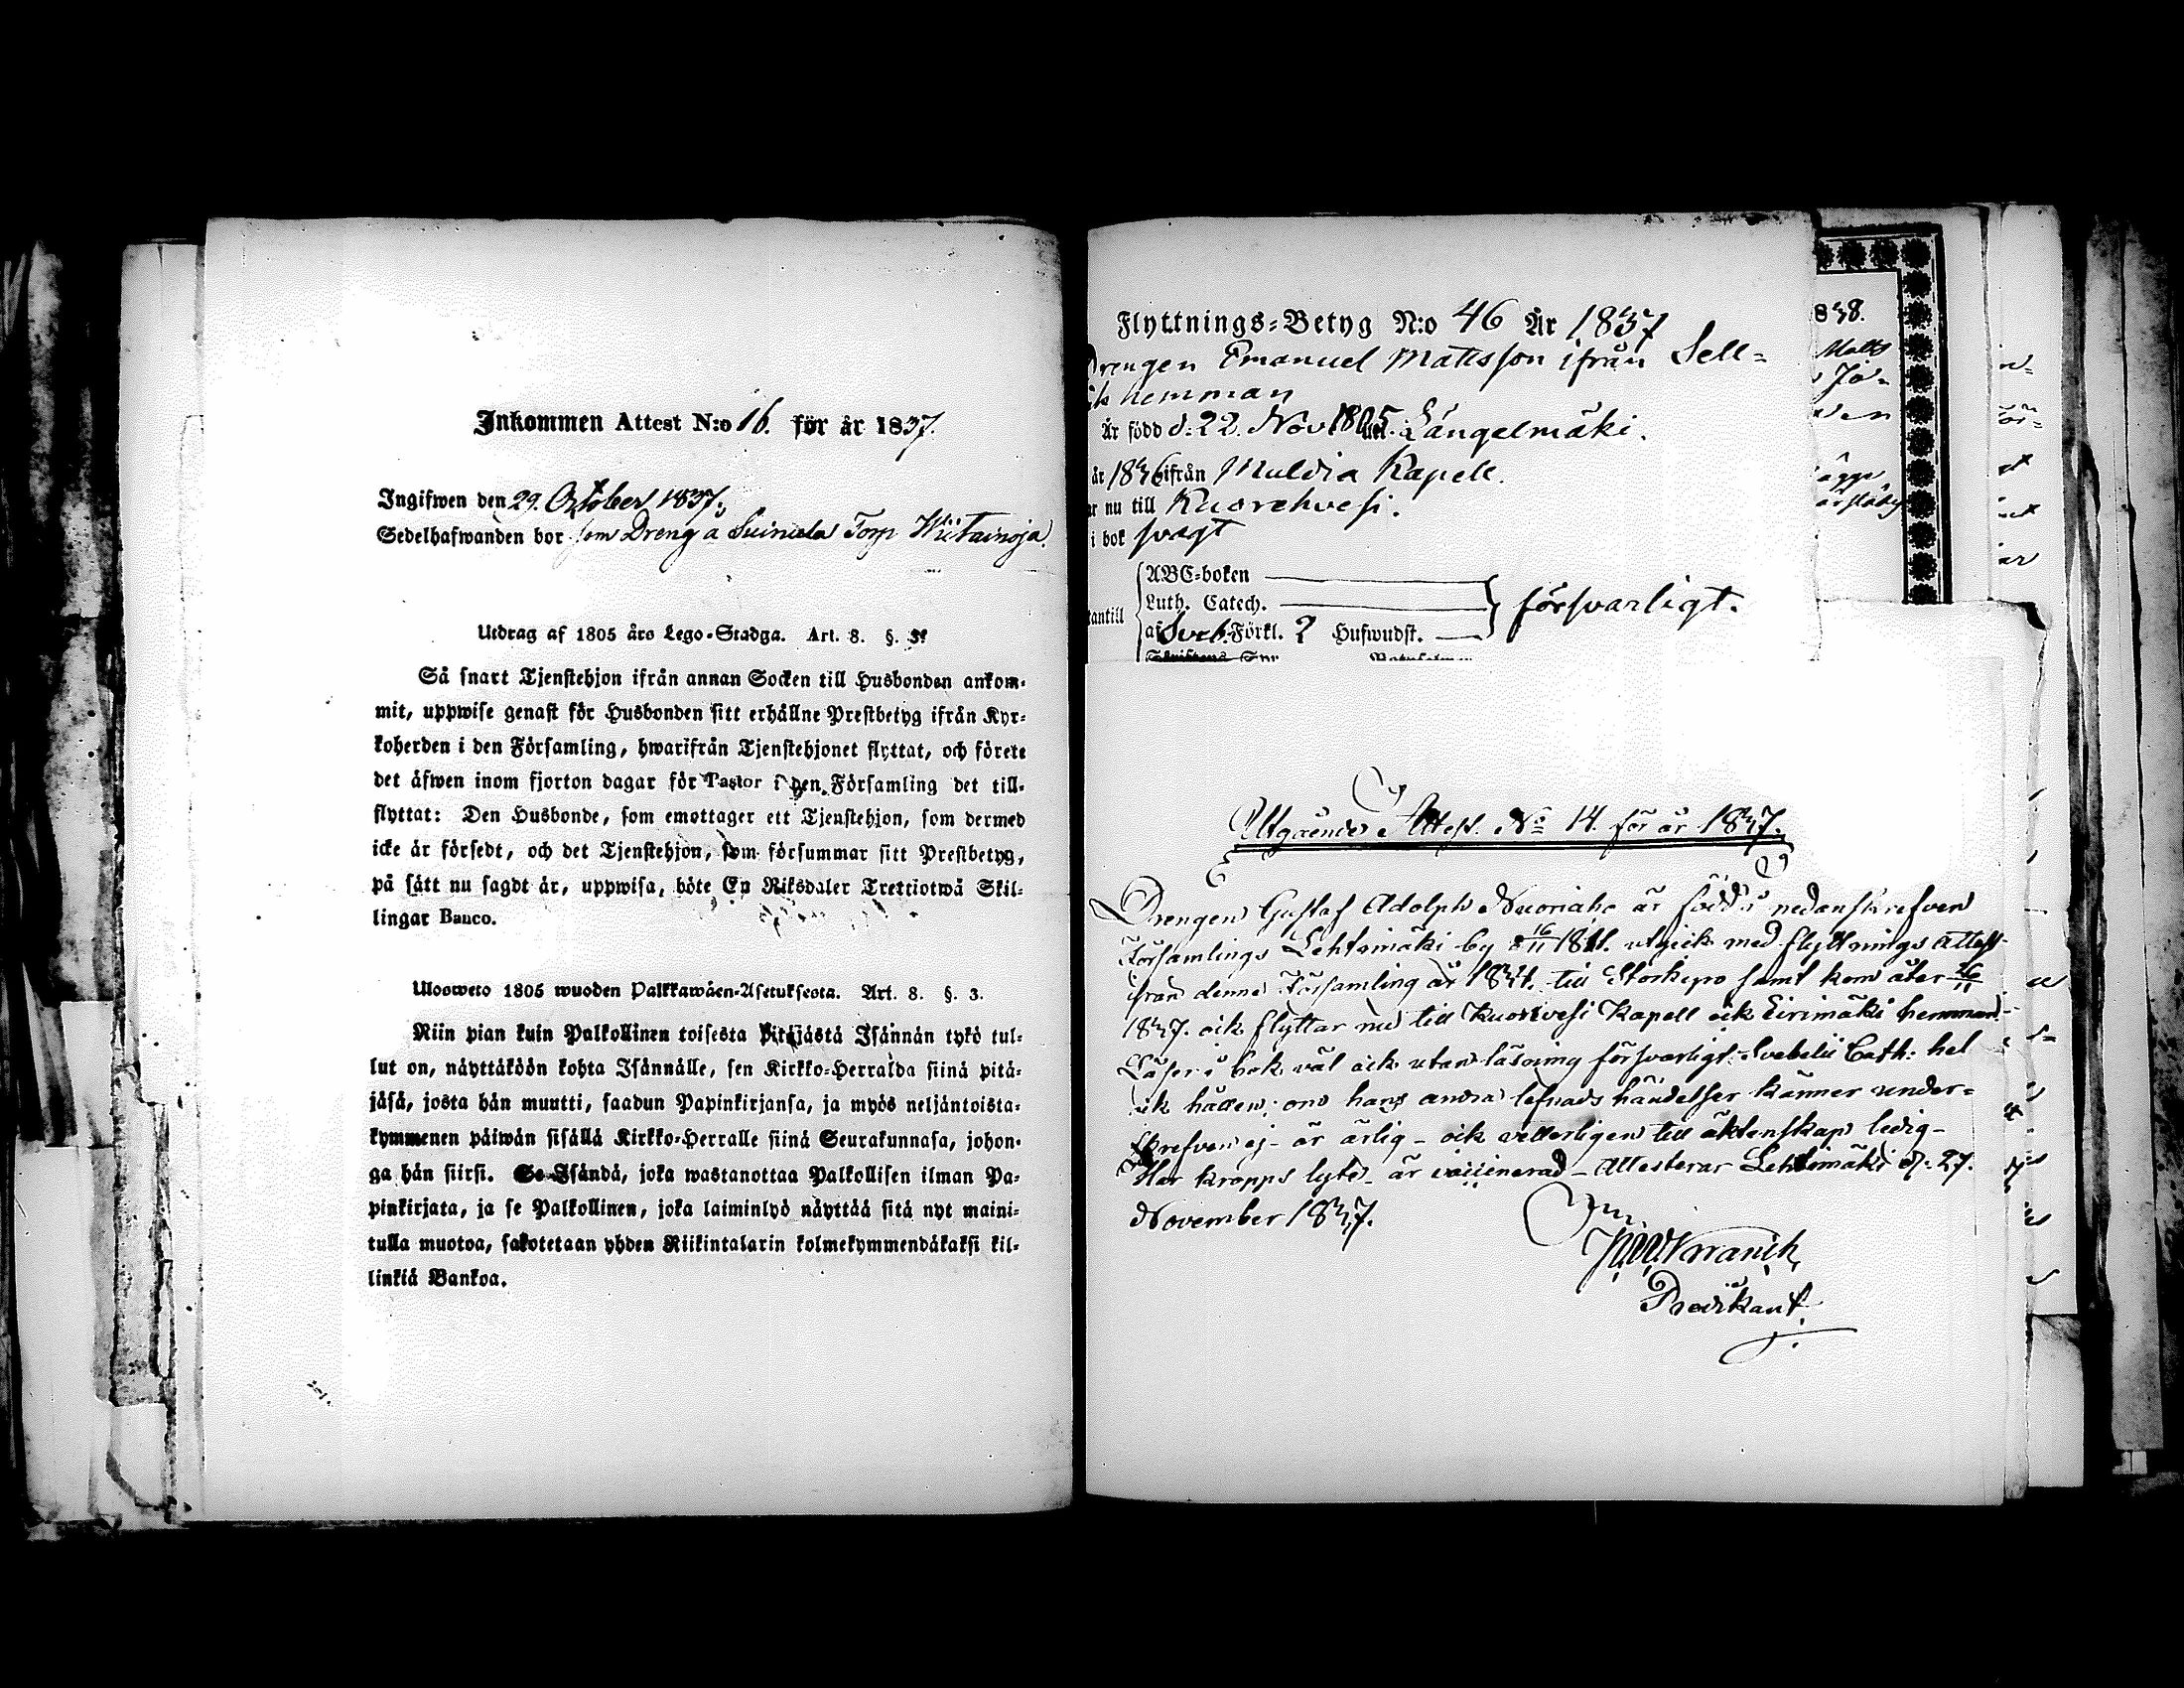 Inkommen Attest N:o 16. för år 1837.
Ingifwen den 29. October 1837.
Sedelhafwanden bor som Dreng å Suinula Torp Wiitainoja.
Utdrag af 1805 års Lego-Stadga. Art. 8. §. 3.
Så snart Tjenstehjon ifrån annan Socken till Husbonden ankom-
mit, uppwise genast för Husbonden sitt erhållne Prestbetyg ifrån Kyr-
koherden i den Församling, hwarifrån Tjenstehjonet flyttat, och förete
det äfwen inom fjorton dagar för Pastor i den Församling det till-
flyttat: Den Husbonde, som emottager ett Tjenstehjon, som dermed
icke är försedt, och det Tjenstehjon, som försummar sitt Prestbetyg,
på sätt nu sagdt är, uppwisa, böte En Riksdaler Trettiotwå Skil-
lingar Banco.
Ulosweto 1805 wuoden Palkkawäen-Asetuksesta. Art. 8. §. 3.
Niin pian kuin Palkollinen toisesta Pitäjästä Isännän tykö tul-
lut on, näyttäköön kohta Isännälle, sen Kirkko-Herralda siinä pitä-
jäsä, josta hän muutti, saadun Papinkirjansa, ja myös neljäntoista-
kymmenen päiwän sisällä Kirkko-Herralle siinä Seurakunnasa, johon-
ga hän siirsi. Se Isändä, joka wastanottaa Palkollisen ilman Pa-
pinkirjata, ja se Palkollinen, joka laiminlyö näyttää sitä nyt maini-
tulla muotoa, sakotetaan yhden Riikintalarin kolmekymmendäkaksi kil-
linkiä Bankoa.
Flyttnings-Betyg N:o 46 År 1837
Drengen Emanuel Mattsson ifrån Sell=
hemman
Är född d: 22. Nov 1805. Längelmäki.
år 1836 ifrån Muldia Kapell.
nu till Kuorehvesi.
i bok svagt
ABC-boken
Luth. Catech.
försvarligt.
tantill
af Sveb. Förkl. 2 Hufwudst.
838.
Matts
Utgående Attest. No 14. för år 1837.
Drengen Gustaf Adolph Nuoriaho är född i nedanskrefven
Församlings Lehtimäki by 16/11 1811. utgick med flyttnings attest
ifrån denne Församling år 1834. till Storkyro samt kom åter 26/11
1837. och flyttar nu till Kuorevesi Kapell och Eirimäki hemman.
Läser i bok väl och utanläsning försvarligt. Svebelii Cath: hel
och hållen; om hans andra lefnads händelser känner under=
skrefven ej - är ärlig - och vetterligen till äktenskap ledig -
Har kropps lyte - är vaccinerad - Attesterar Lehtimäki d: 27.
November 1837.
Predikant.